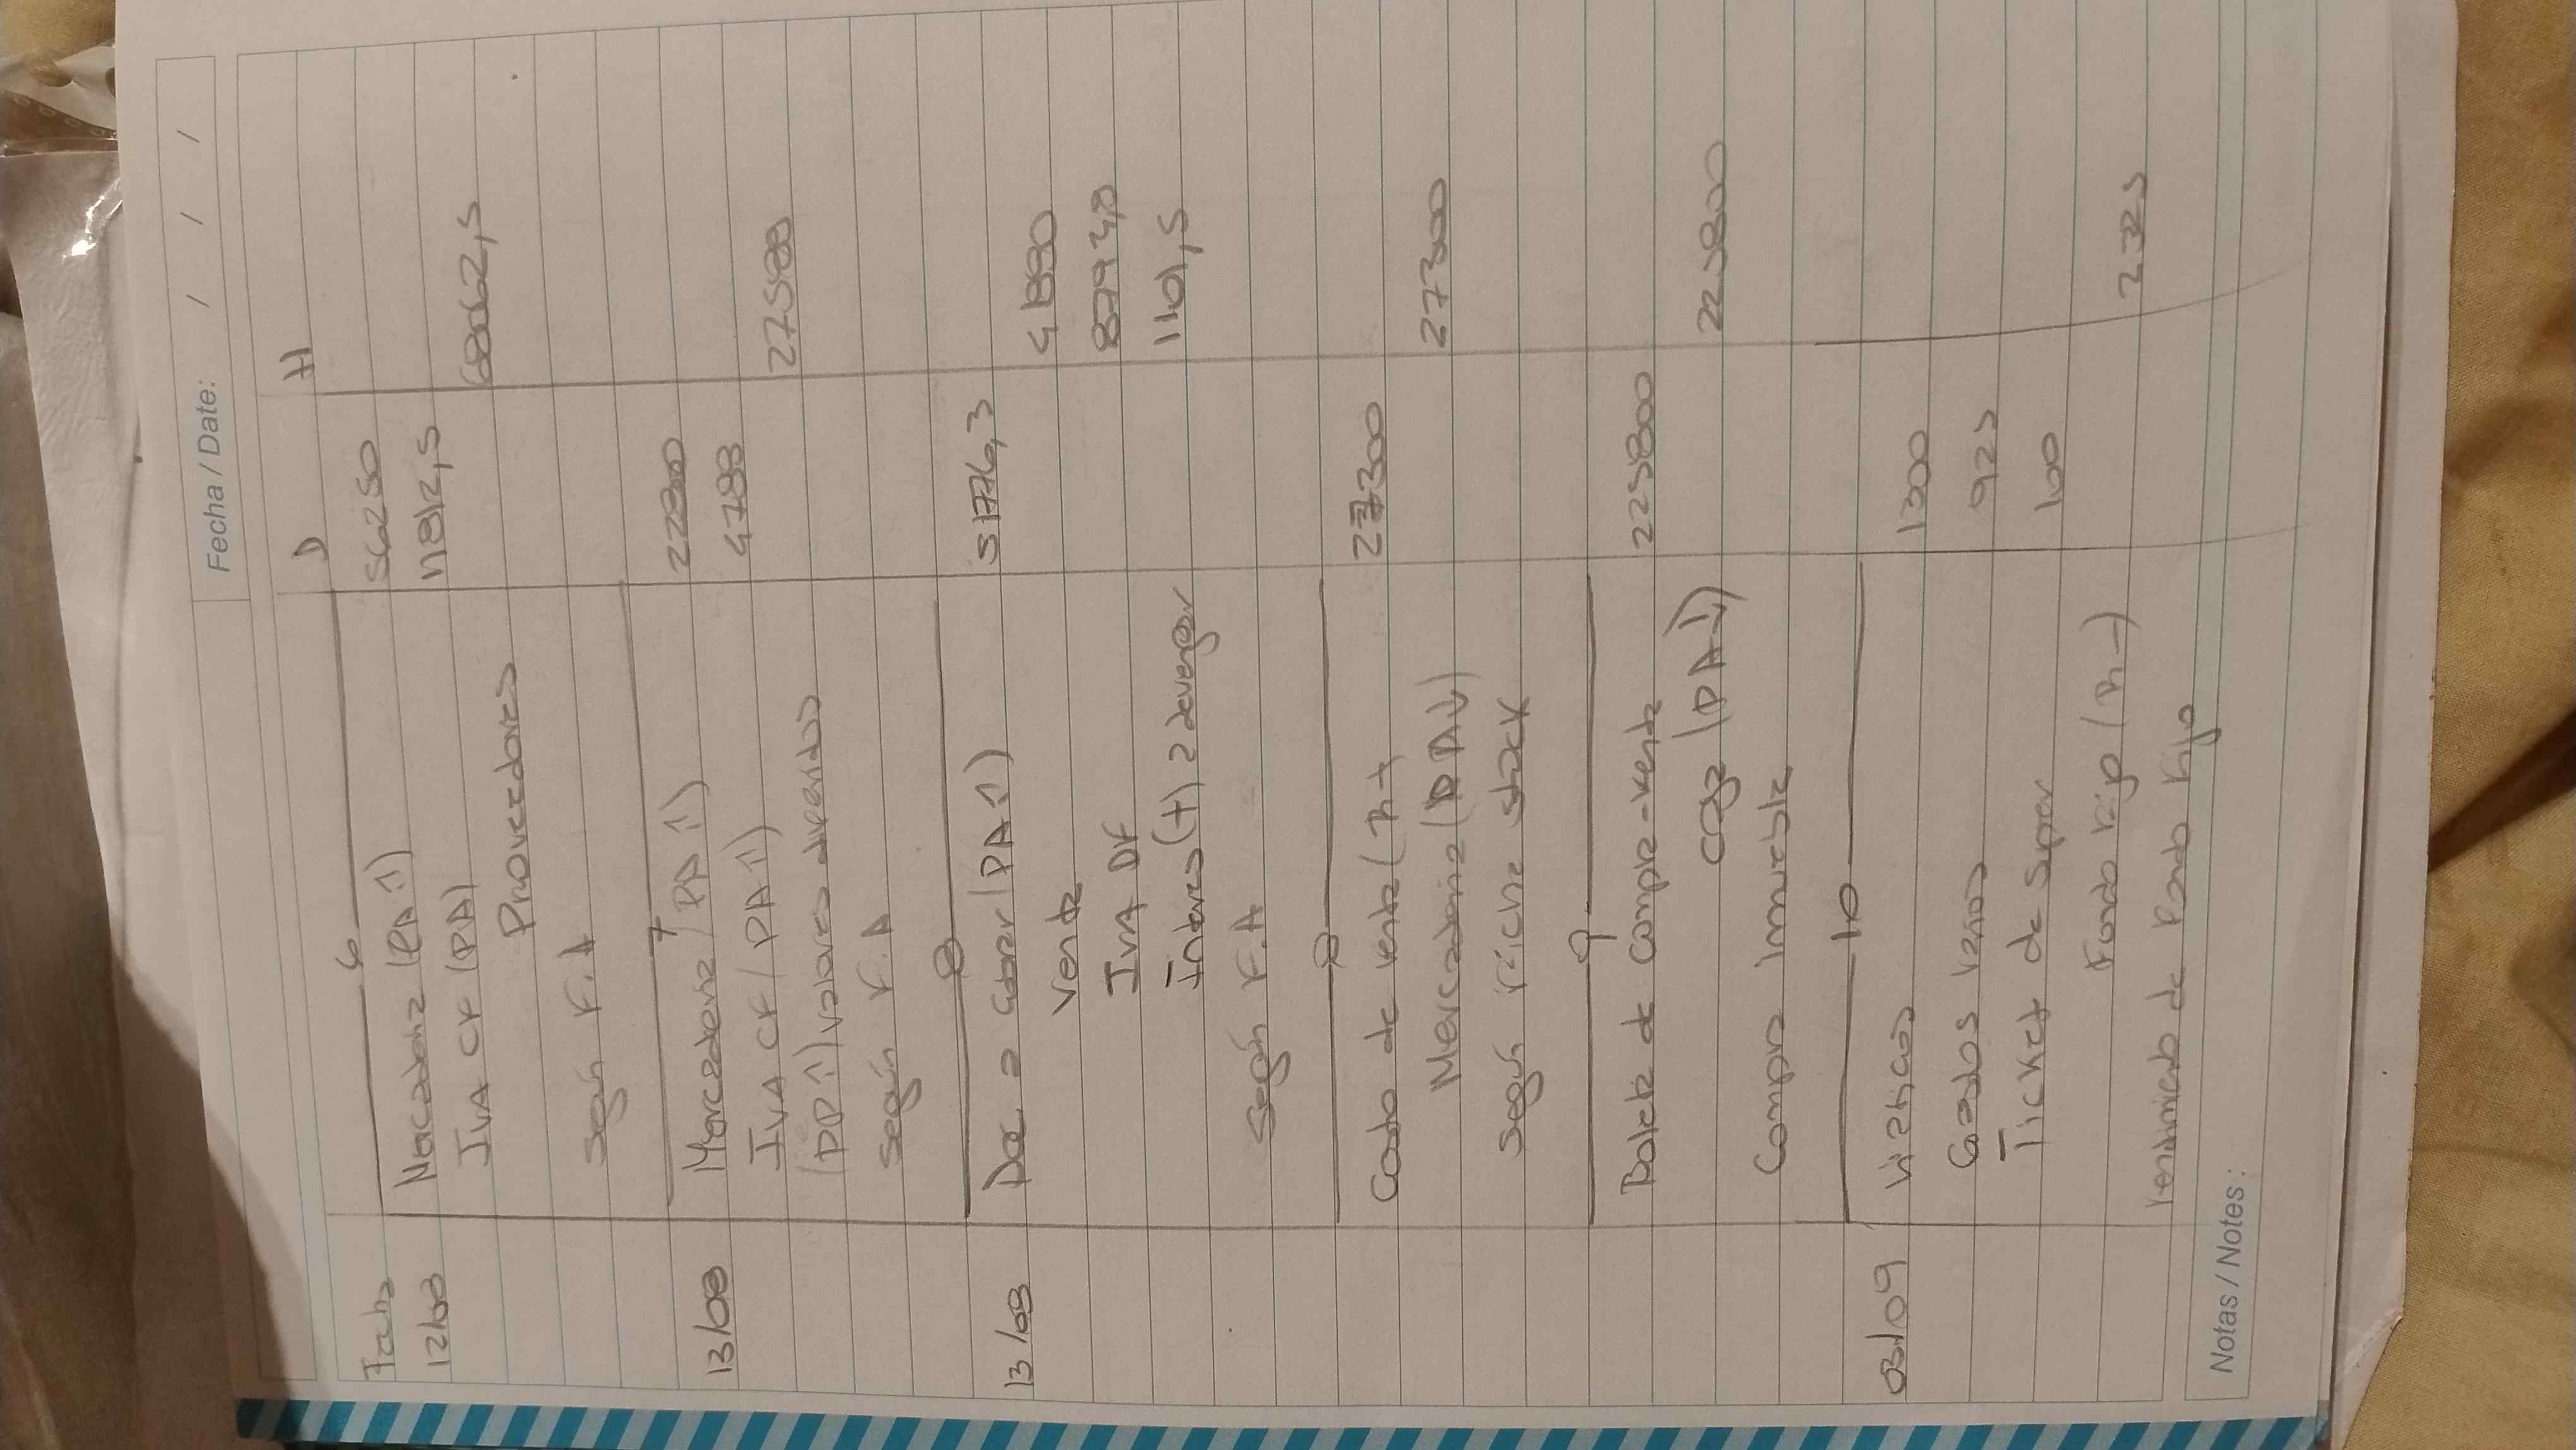 Fecha / Date: / / /
Fecha D H
6
12/08 Mercaderia (PA↑) 56250
IVA CF (PA) 11812,5
Proveedores 68062,5
Según F.A
7
13/08 Mercaderia (PA↑) 22800
IVA CF (PA↑) 4788
(PP↑) valores diferidos 27588
Según F.A
8
13/08 Doc a cobrar (PA↑) 51776,3
Venta 41880
IVA DF 8794,8
Interes (+) a devengar 1101,5
Según F.A
8
Costo de venta (R-) 27300
Mercaderia (PA↓) 27300
Según ficha stock
9
Boleto de compra-venta 225800
Caja (PA↓) 225800
Compra Inmueble
10
03/09 Viaticos 1300
Gastos varios 925
Ticket de super 100
Fondo Fijo (R-) 2325
rendimiento de Fondo Fijo
Notas / Notes: